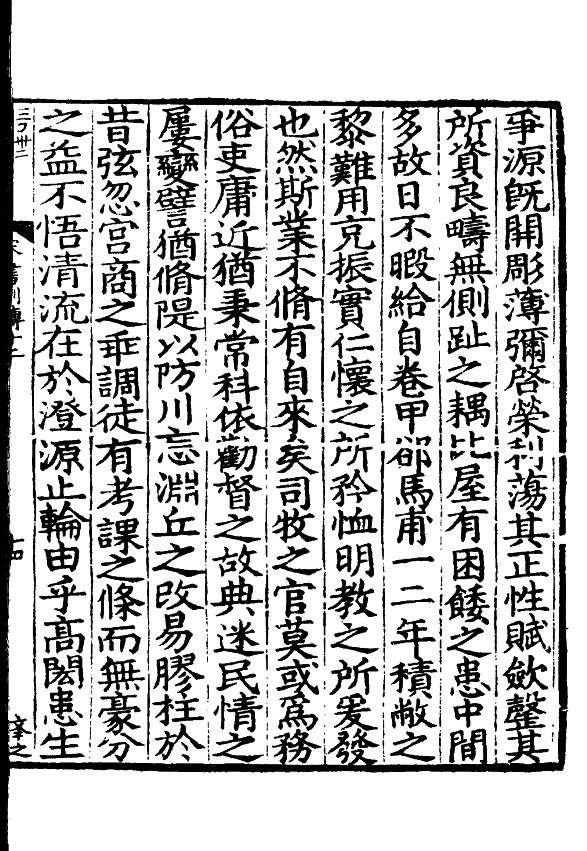 爭源旣開彫薄彌啓榮利蕩其正性賦斂罄其
所資良疇無側趾之耦比屋有困餧之患中間
多故日不暇給自卷甲郤馬甫一二年積敝之
黎難用克振實仁懷之所矜恤明教之所爰發
也然斯業不脩有自來矣司牧之官莫或爲務
俗吏庸近猶秉常科依勸督之故典迷民情之
屢變譬猶脩隄以防川忘淵丘之改易膠柱於
昔弦忽宮商之乖調徒有考課之條而無豪分
之益不悟清流在於澄源止輪由乎高閎患生
十四